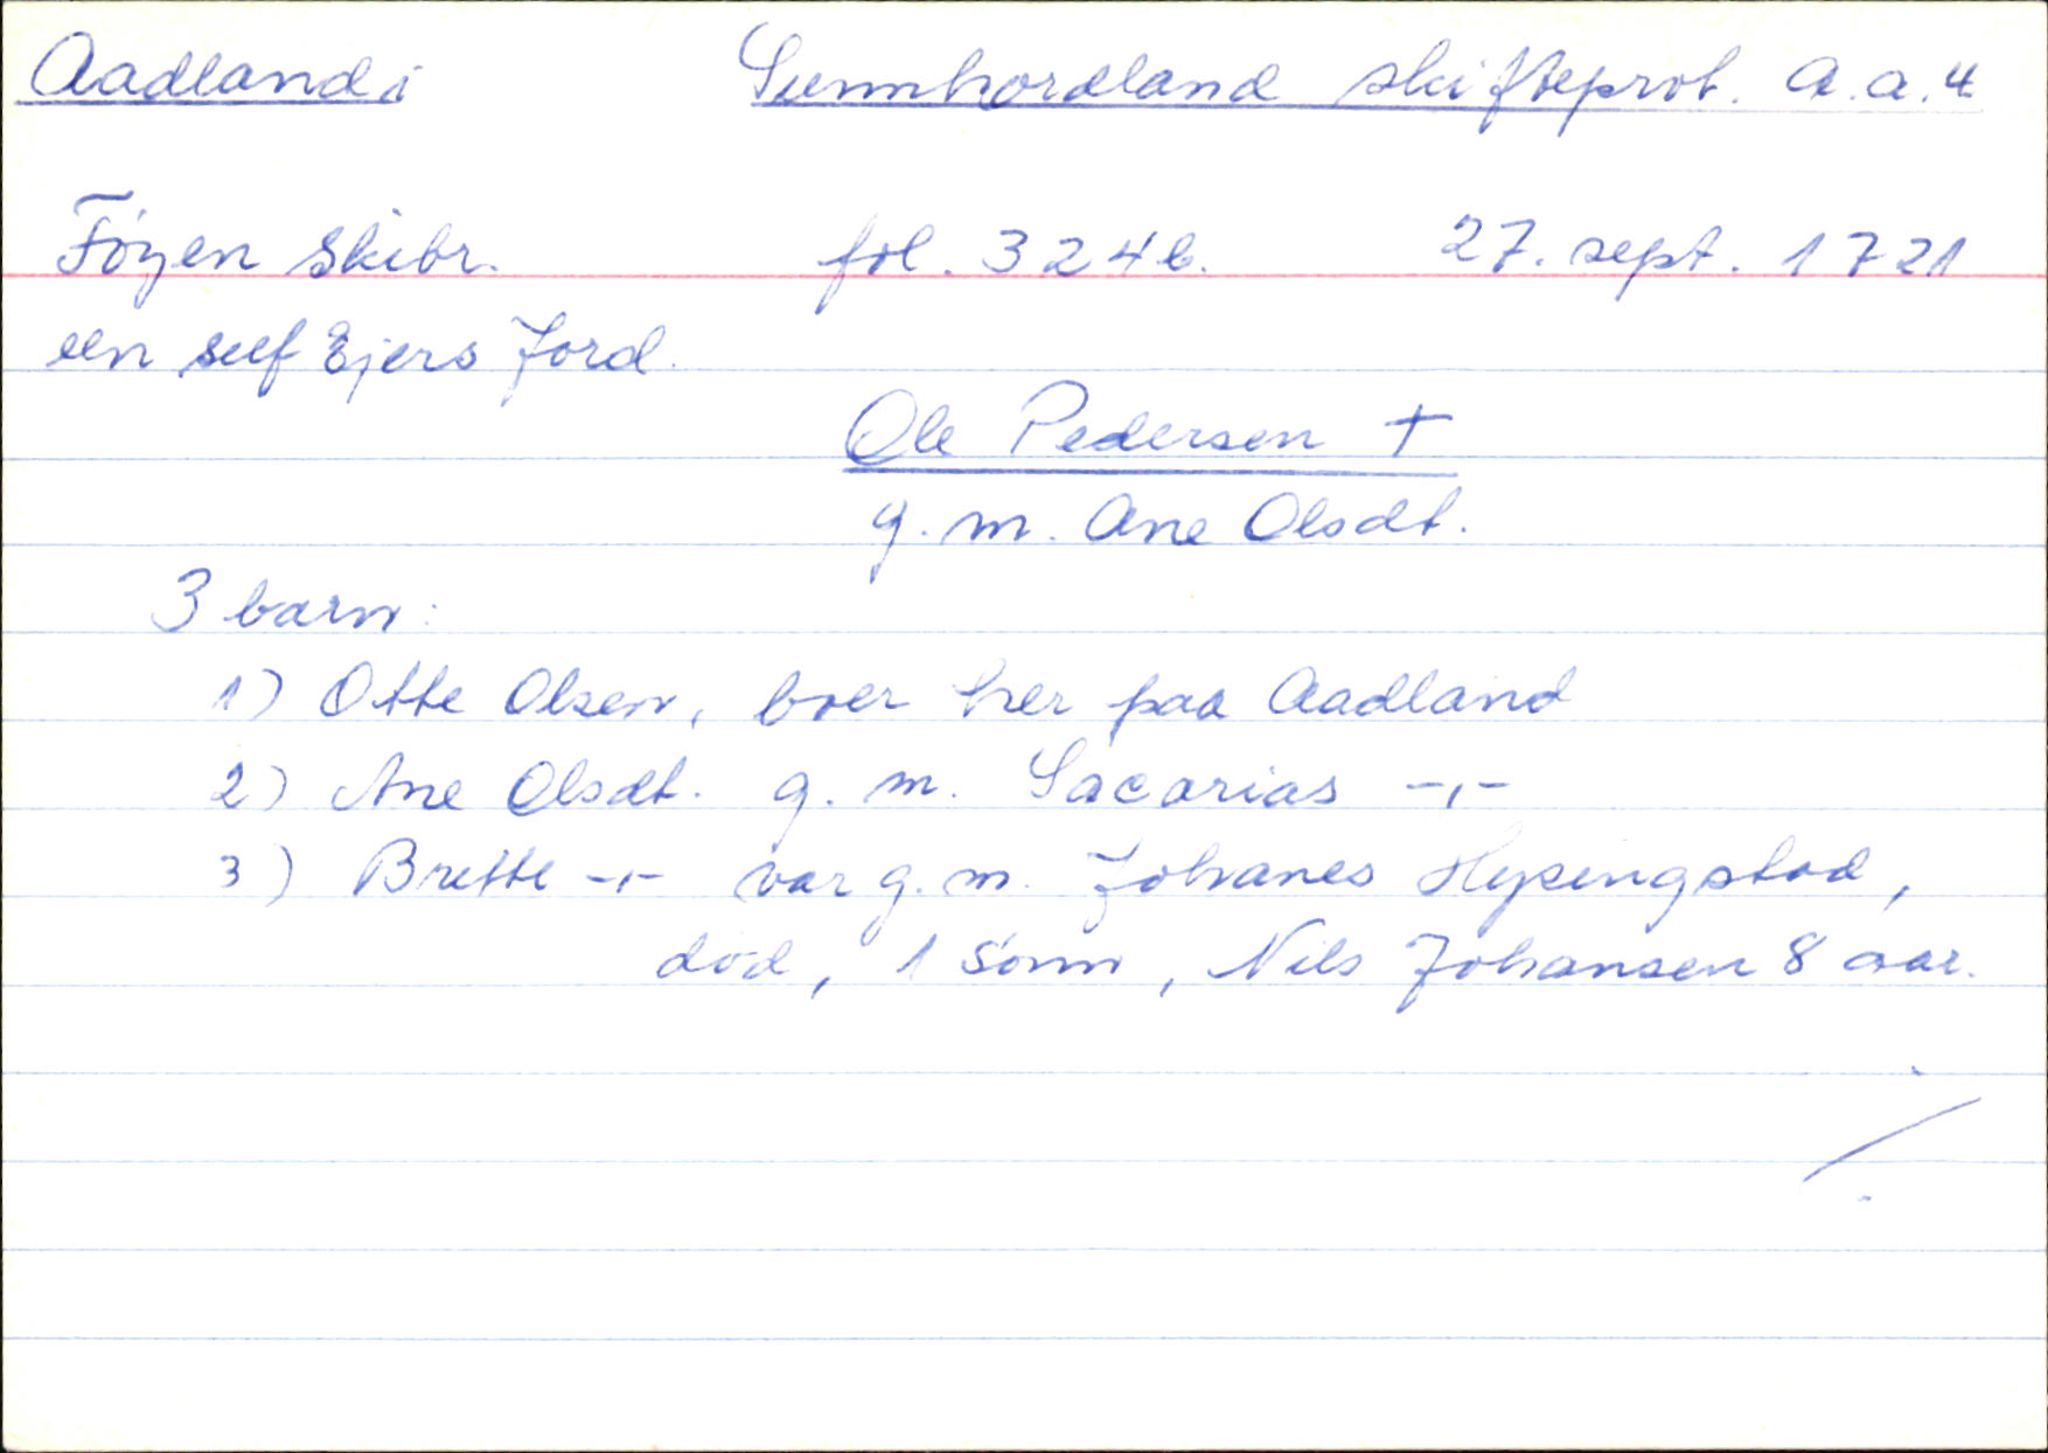 Aadland i Sunnhordland skifteprot. A.a.4
Föyen Skibr. fol. 324b. 27. sept. 1721
een self Ejers Jord.
Ole Pedersen †
g. m. Ane Olsdt.
3 barn:
1) Otte Olsen, boer her paa Aadland
2) Ane Olsdt. g. m. Sacarias -,-
3) Britte -,- var g. m. Johanes Hysingstad,
död, 1 sönn, Nils Johansen 8 aar.